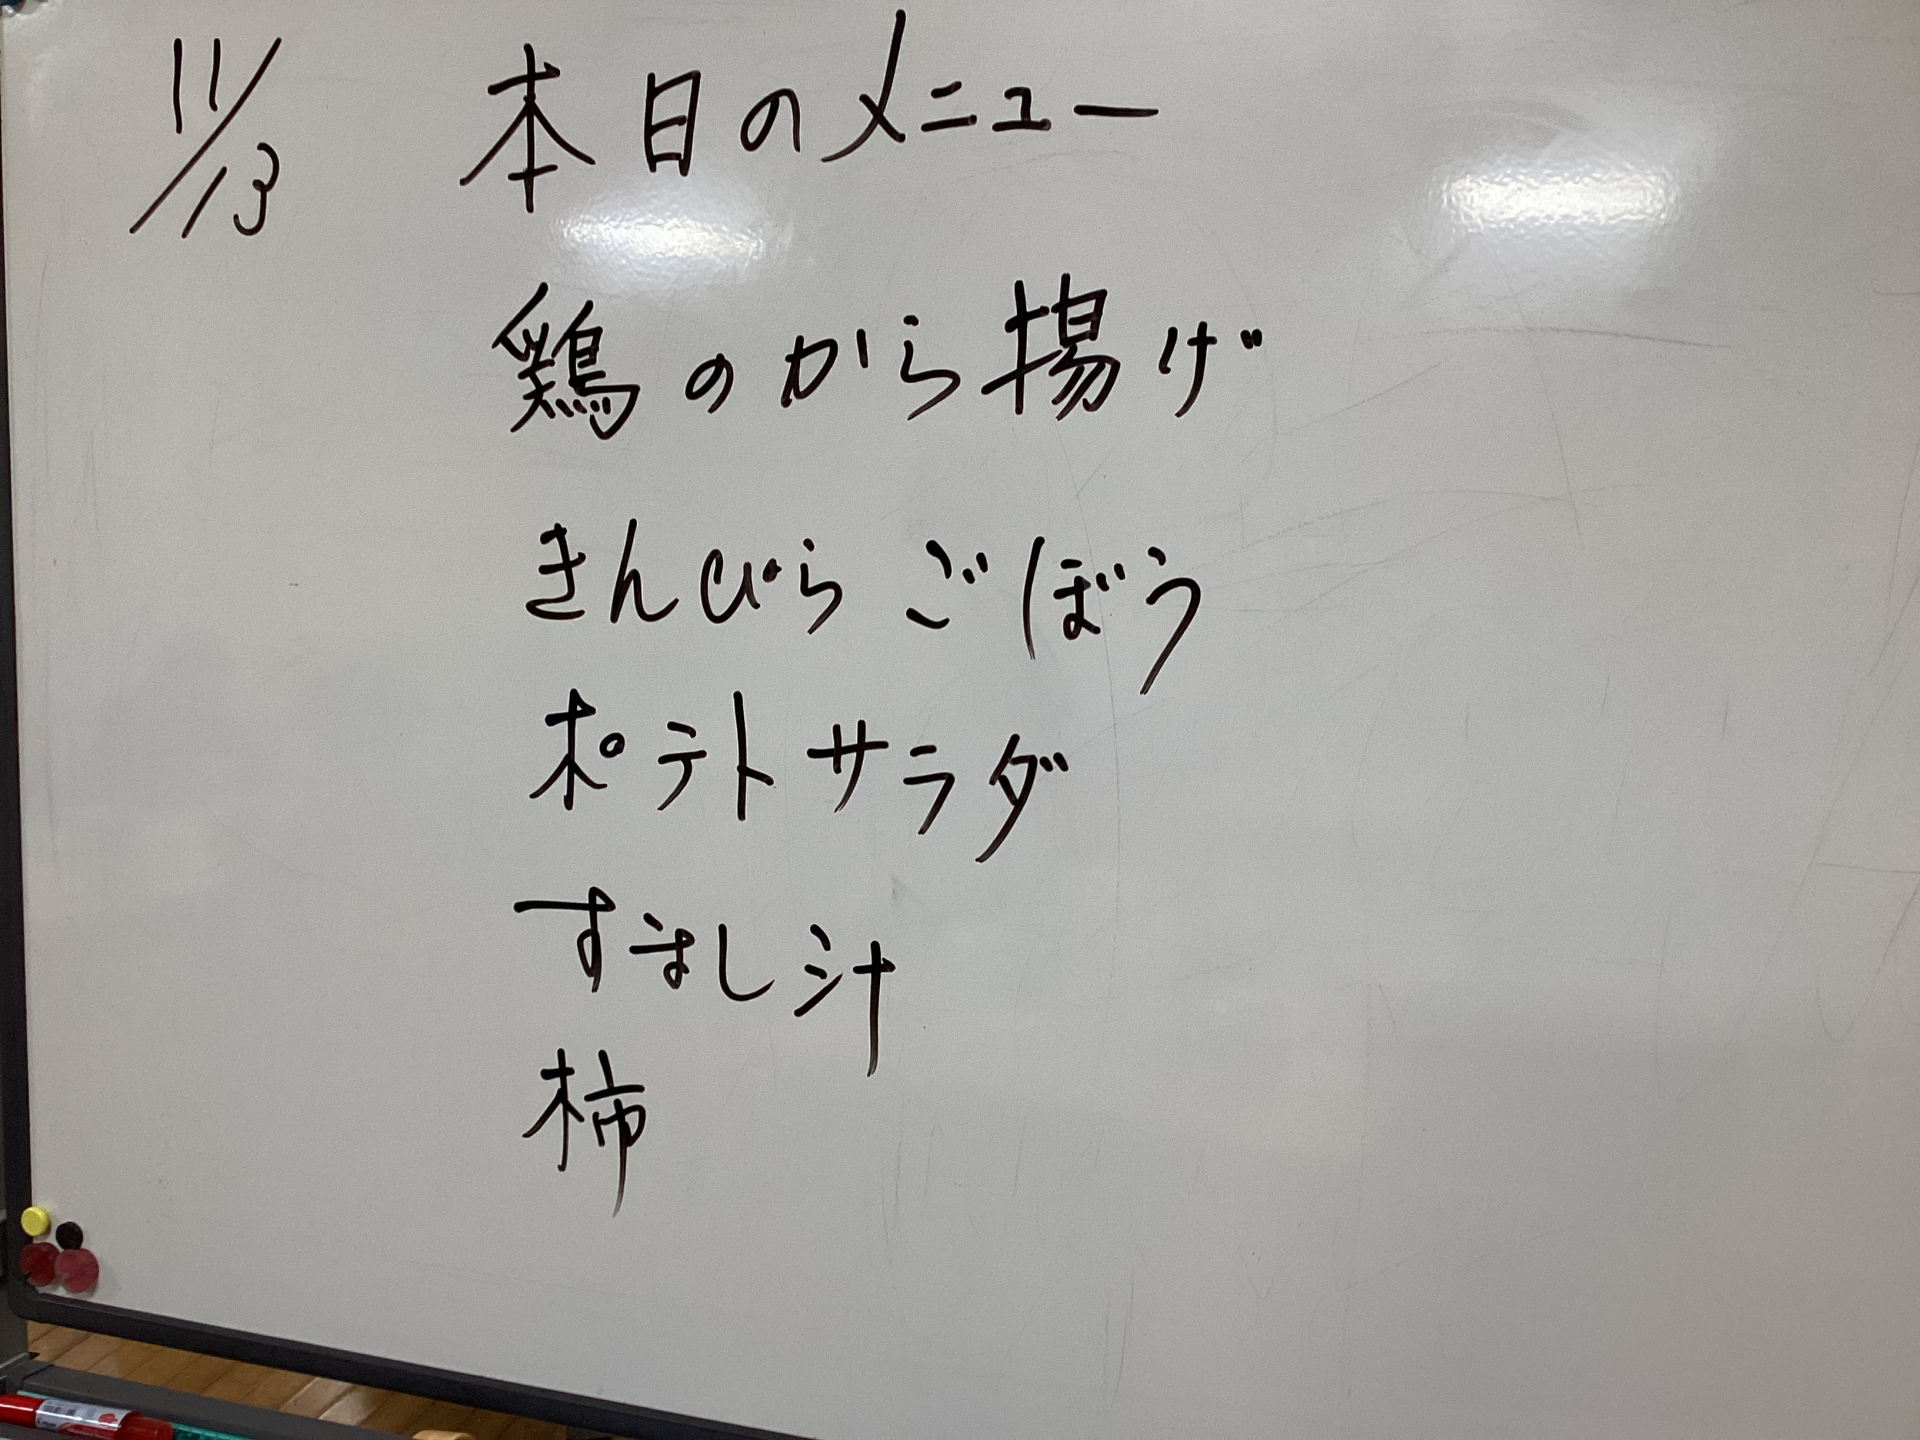 11/13 本日のメニュー
鶏のから揚げ
きんぴらごぼう
ポテトサラダ
すまし汁
柿